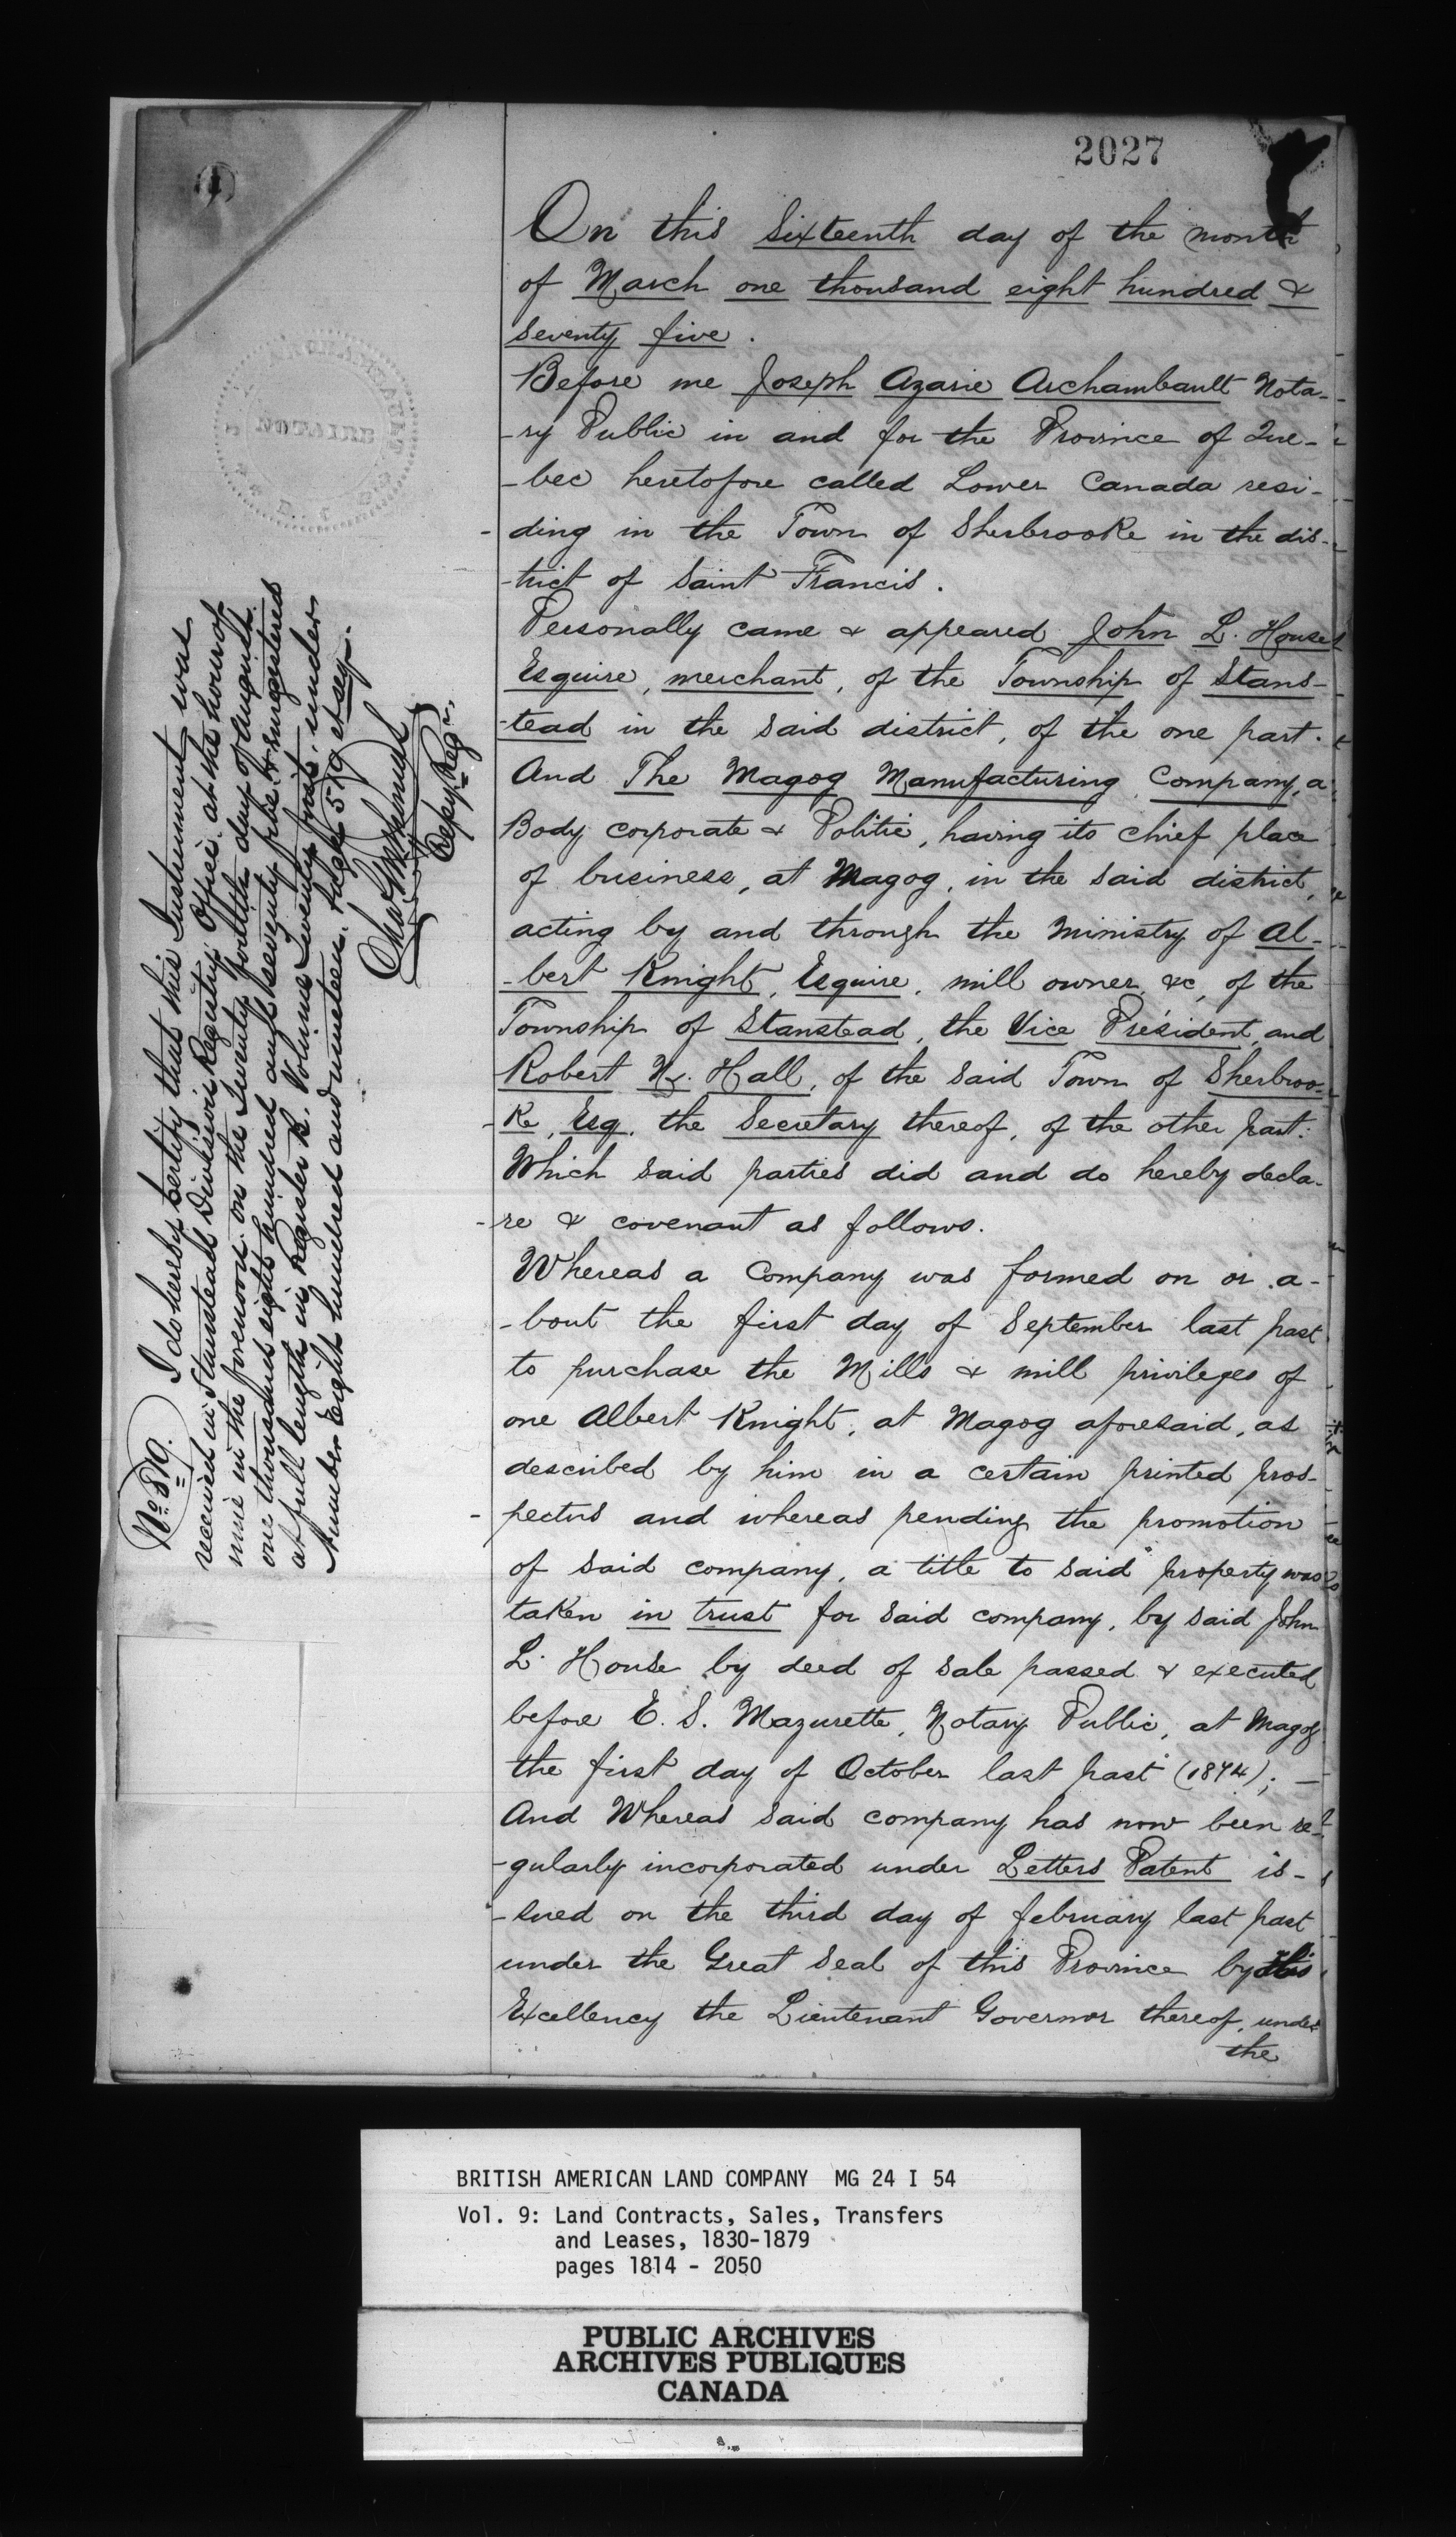 2027
On this Sixteenth day of the month
of March one thousand eight hundred &
seventy five.
Before me Joseph Azarie Archambault Nota-
-ry Public in and for the Province of Que-
-bec heretofore called Lower Canada resi-
-ding in the Town of Sherbrooke in the dis-
-trict of Saint Francis.
Personally came & appeared John L. House
Esquire, merchant, of the Township of Stans-
-tead in the said district, of the one part.
And The Magog Manufacturing Company, a
Body corporate & Politic, having its chief place
of business, at Magog, in the said district,
acting by and through the ministry of Al-
-bert Knight, Esquire, mill owner, &c, of the
Township of Stanstead, the Vice President, and
Robert N. Hall, of the said Town of Sherbroo-
-ke, Esq. the Secretary thereof, of the other part:
Which said parties did and do hereby decla-
-re & covenant as follows.
Whereas a Company was formed on or a-
-bout the first day of September last past
to purchase the Mills & mill privileges of
one Albert Knight, at Magog aforesaid, as
described by him in a certain printed pros-
-pectus and whereas pending the promotion
of said company, a title to said property was
taken in trust for said company, by said John
L. House by deed of sale passed & executed
before E. S. Mazurette, Notary Public, at Magog
the first day of October last past (1874);
And Whereas said company has now been re-
-gularly incorporated under Letters Patent is-
-sued on the third day of february last past
under the Great Seal of this Province by His
Excellency the Lieutenant Governor thereof, under
the
NOTAIRE
No. 819. I do hereby certify that this Instrument was
received in Stanstead Division Registry Office at the hour of
nine in the forenoon on the Twenty fourth day of August
one thousand eight hundred and seventy five & registered
at full length in Register B. Volume Twenty first, under
Number Eight hundred and nineteen. Page 579 et seq.
Depy Regr.
BRITISH AMERICAN LAND COMPANY MG 24 I 54
Vol. 9: Land Contracts, Sales, Transfers
and Leases, 1830-1879
pages 1814 - 2050
PUBLIC ARCHIVES
ARCHIVES PUBLIQUES
CANADA